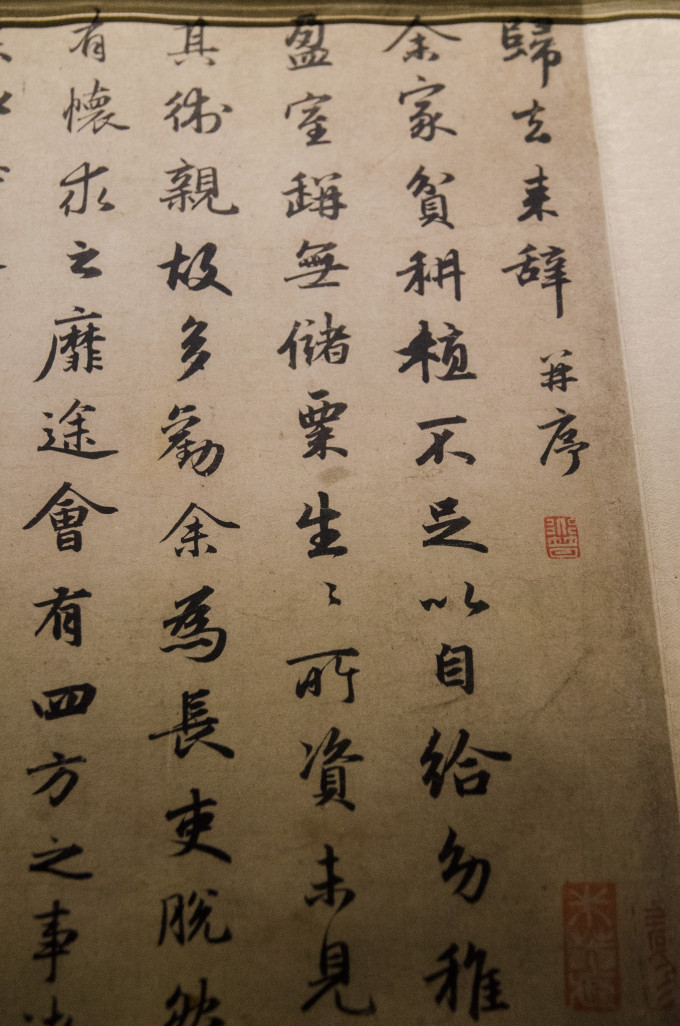 歸去来辞 并序
余家貧耕植不足以自給幼稚
盈室缾無儲粟生〻所資未見
其術親故多勸余為長吏脫然
有懷求之靡途會有四方之事